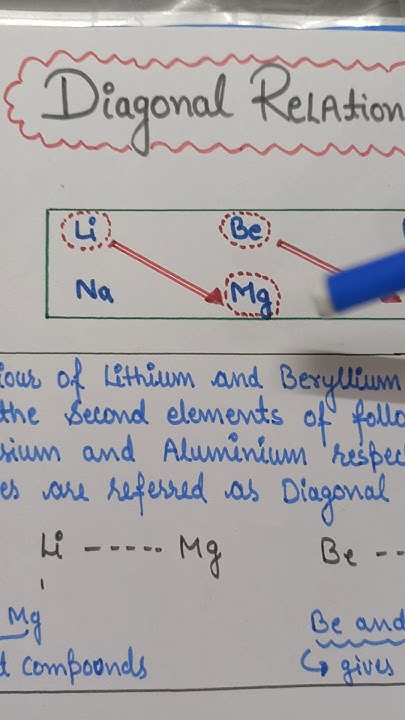 Diagonal Relation
Li Be
Na Mg
iour of Lithium and Beryllium
the second elements of follo
sium and Aluminium respec
es are referred as Diagonal
Li ----- Mg Be --
Mg Be and
t compounds ↳ gives